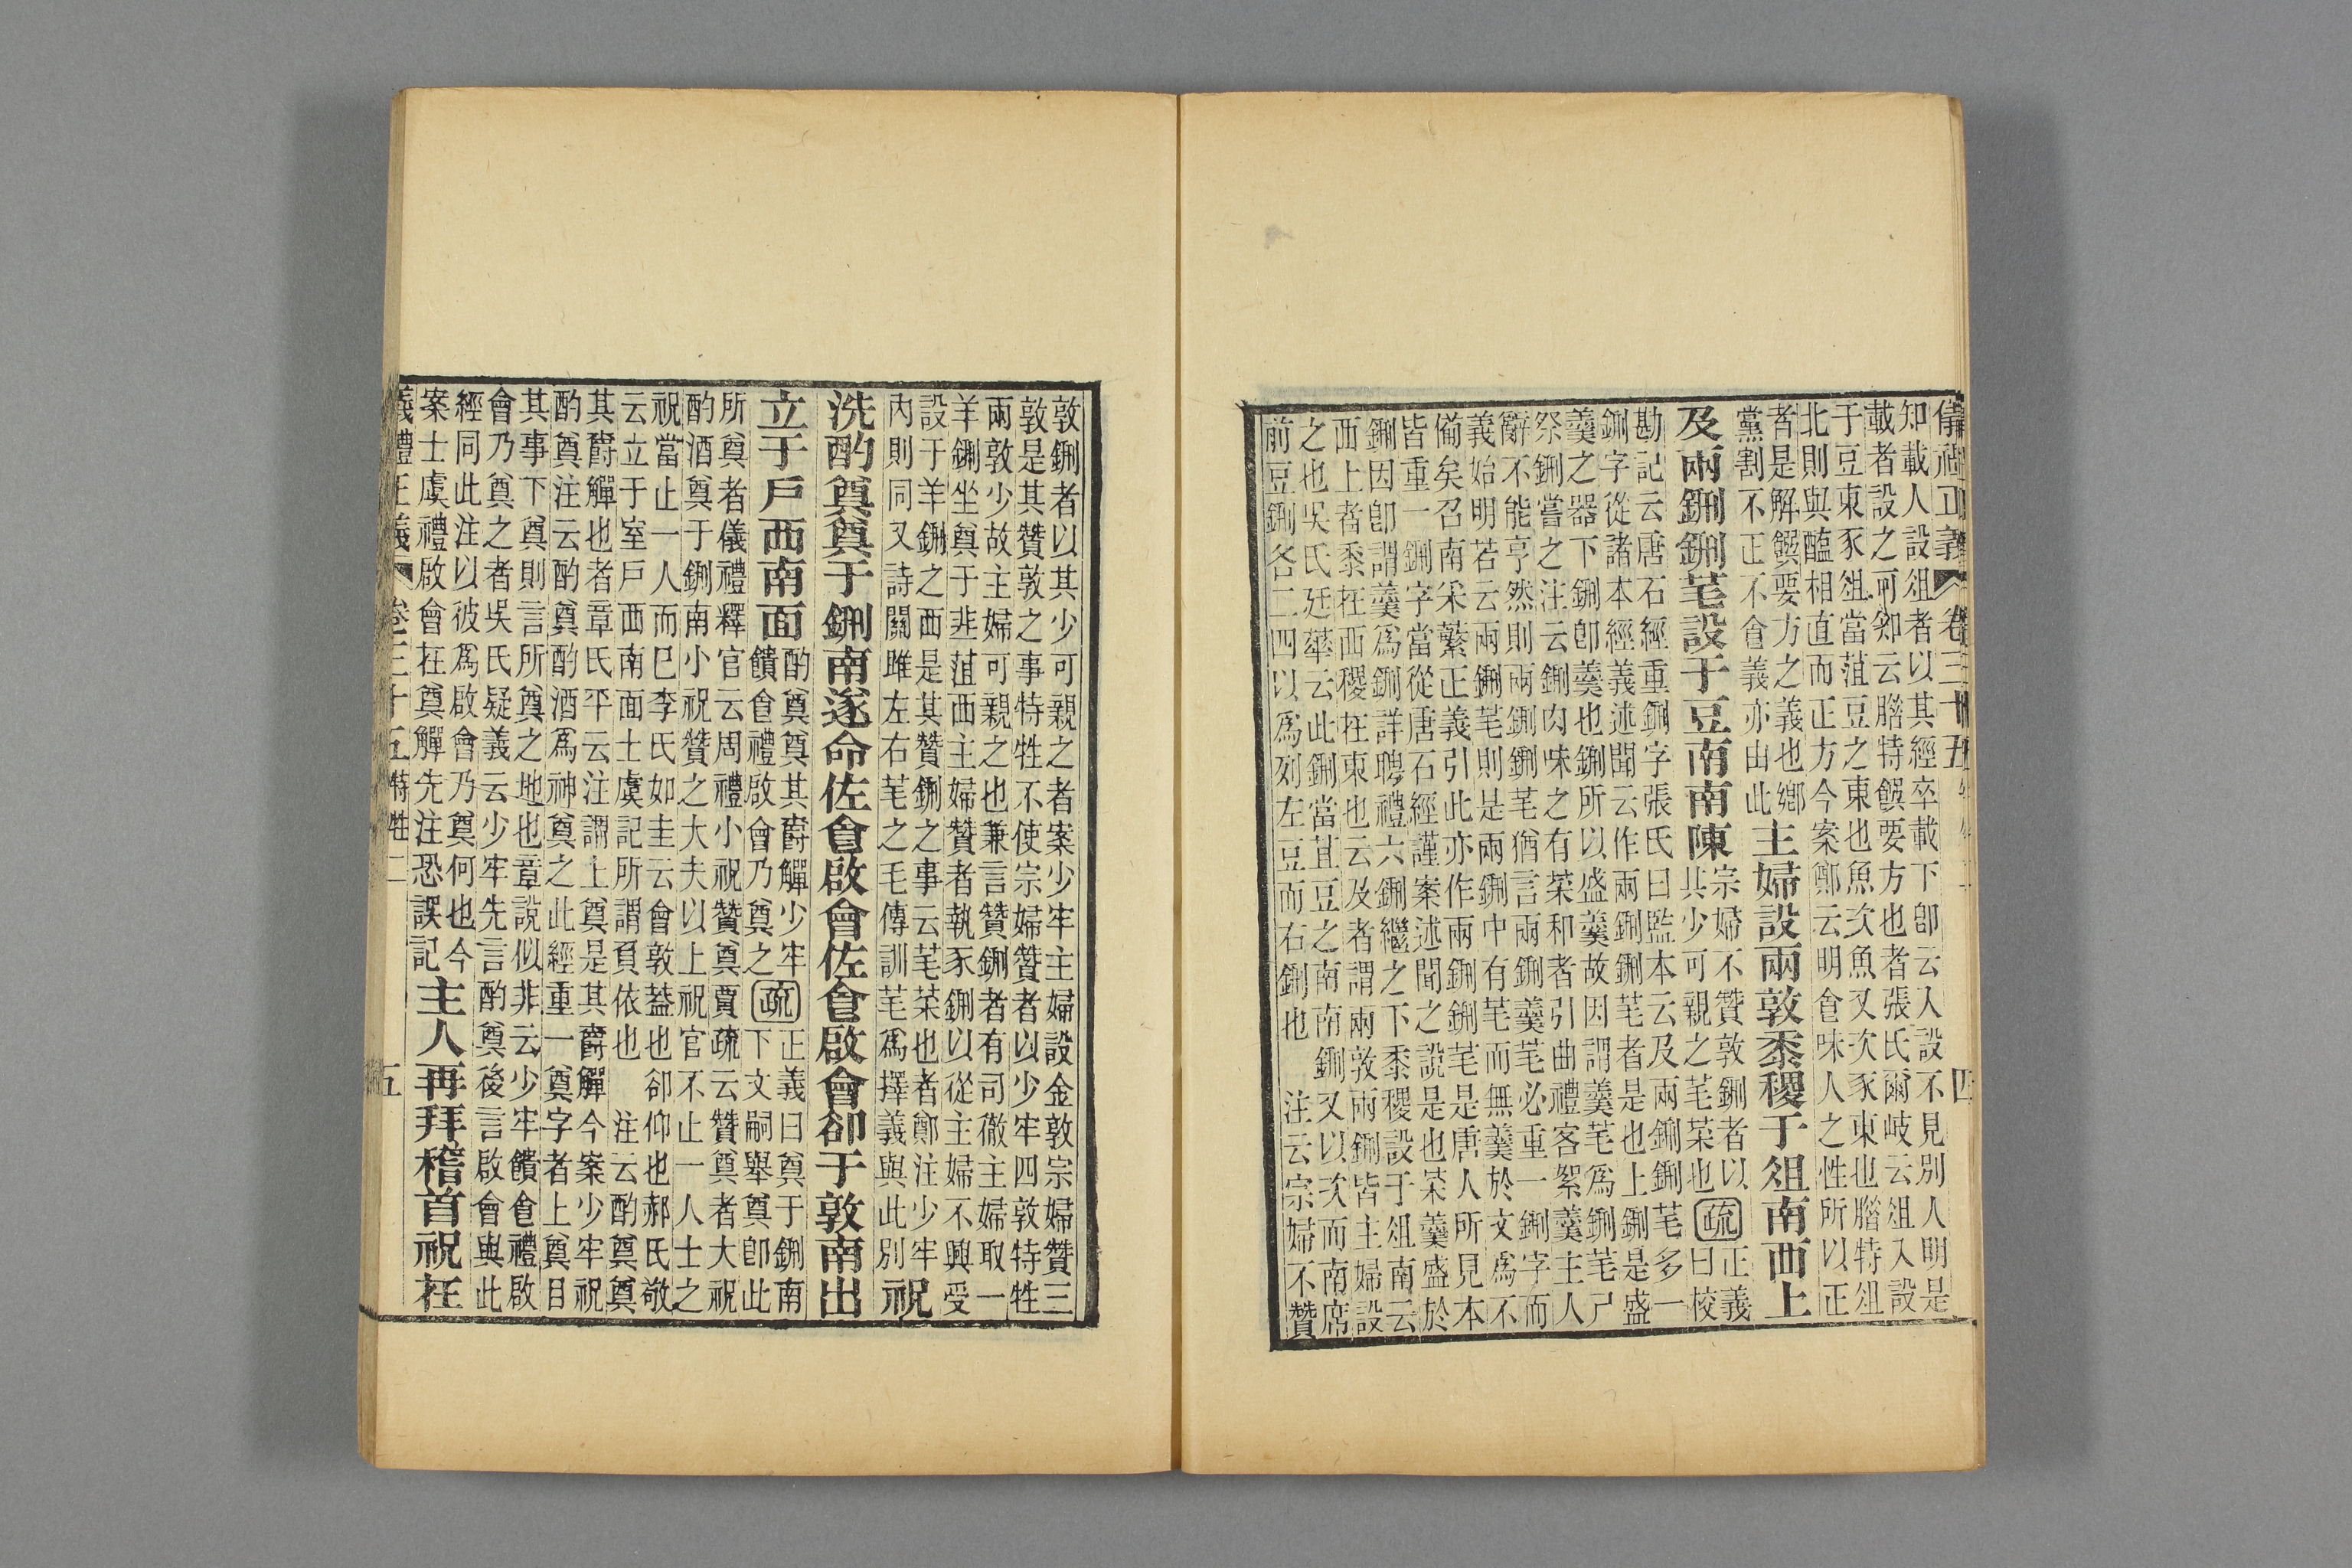 儀禮正義 卷三十五 四
知載人設俎者以其經卒載下卽云入設不見別人明是
載者設之可知云腊特饌要方也者張氏爾岐云俎入設
于豆東豕俎當菹豆之東也魚次魚又次豕東也腊特俎
北則與醢相直而正方今案鄭云明食味人之性所以正
者是解饌要方之義也鄉
黨割不正不食義亦由此
主婦設兩敦黍稷于俎南西上
及兩鉶鉶芼設于豆南南陳
宗婦不贊敦鉶者以
其少可親之芼菜也
疏
正義
曰校
勘記云唐石經重鉶字張氏曰監本云及兩鉶鉶芼多一
鉶字從諸本經義述聞云作兩鉶鉶芼者是也上鉶是盛
羹之器下鉶卽羹也鉶所以盛羹故因謂羹芼爲鉶芼尸
祭鉶嘗之注云鉶肉味之有菜和者引曲禮客絮羹主人
辭不能亨然則兩鉶鉶芼猶言兩鉶羹芼必重一鉶字而
義始明若云兩鉶芼則是兩鉶中有芼而無羹於文爲不
備矣召南采蘩正義引此亦作兩鉶鉶芼是唐人所見本
皆重一鉶字當從唐石經謹案述聞之說是也菜羹盛於
鉶因卽謂羹爲鉶詳聘禮六鉶繼之下黍稷設于俎南云
西上者黍在西稷在東也云及者謂兩敦兩鉶皆主婦設
之也吳氏廷華云此鉶當菹豆之南南鉶又以次而南席
前豆鉶各二四以爲列左豆而右鉶也　注云宗婦不贊
敦鉶者以其少可親之者案少牢主婦設金敦宗婦贊三
敦是其贊敦之事特牲不使宗婦贊者以少牢四敦特牲
兩敦少故主婦可親之也兼言贊鉶者有司徹主婦取一
羊鉶坐奠于韭菹西主婦贊者執豕鉶以從主婦不興受
設于羊鉶之西是其贊鉶之事云芼菜也者鄭注少牢
內則同又詩關雎左右芼之毛傳訓芼爲擇義與此別
祝
洗酌奠奠于鉶南遂命佐食啟會佐食啟會卻于敦南出
立于戶西南面
酌奠奠其爵觶少牢
饋食禮啟會乃奠之
疏
正義曰奠于鉶南
下文嗣舉奠卽此
所奠者儀禮釋官云周禮小祝贊奠賈疏云贊奠者大祝
酌酒奠于鉶南小祝贊之大夫以上祝官不止一人士之
祝當止一人而已李氏如圭云會敦蓋也卻仰也郝氏敬
云立于室戶西南面士虞記所謂負依也　注云酌奠奠
其爵觶也者章氏平云注謂上奠是其爵觶今案少牢祝
酌奠注云酌奠酌酒爲神奠之此經重一奠字者上奠目
其事下奠則言所奠之地也章說似非云少牢饋食禮啟
會乃奠之者吳氏疑義云少牢先言酌奠後言啟會與此
經同此注以彼爲啟會乃奠何也今
案士虞禮啟會在奠觶先注恐誤記
主人再拜稽首祝在
儀禮正義 卷三十五 特牲二 五